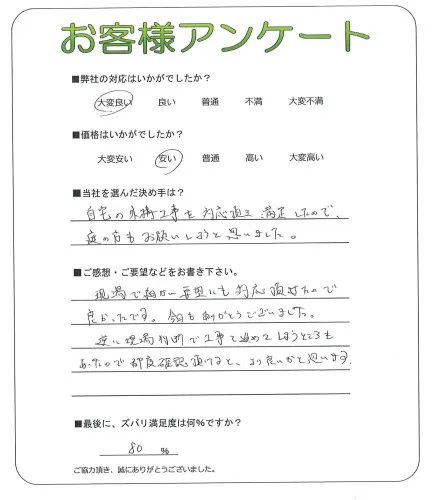 お客様アンケート
■弊社の対応はいかがでしたか?
大変良い 良い 普通 不満 大変不満
■価格はいかがでしたか?
大変安い 安い 普通 高い 大変高い
■当社を選んだ決め手は?
自宅の外構工事を対応頂き満足したので、
庭の方もお願いしようと思いました。
■ご感想・ご要望などをお書き下さい。
現場で細かい要望にも対応頂けたので
良かったです。今回もありがとうございました。
逆に現場判断で工事を進めてしまうところも
あったので都度確認頂けると、より良いかと思います。
■最後に、ズバリ満足度は何%ですか?
80 %
ご協力頂き、誠にありがとうございました。